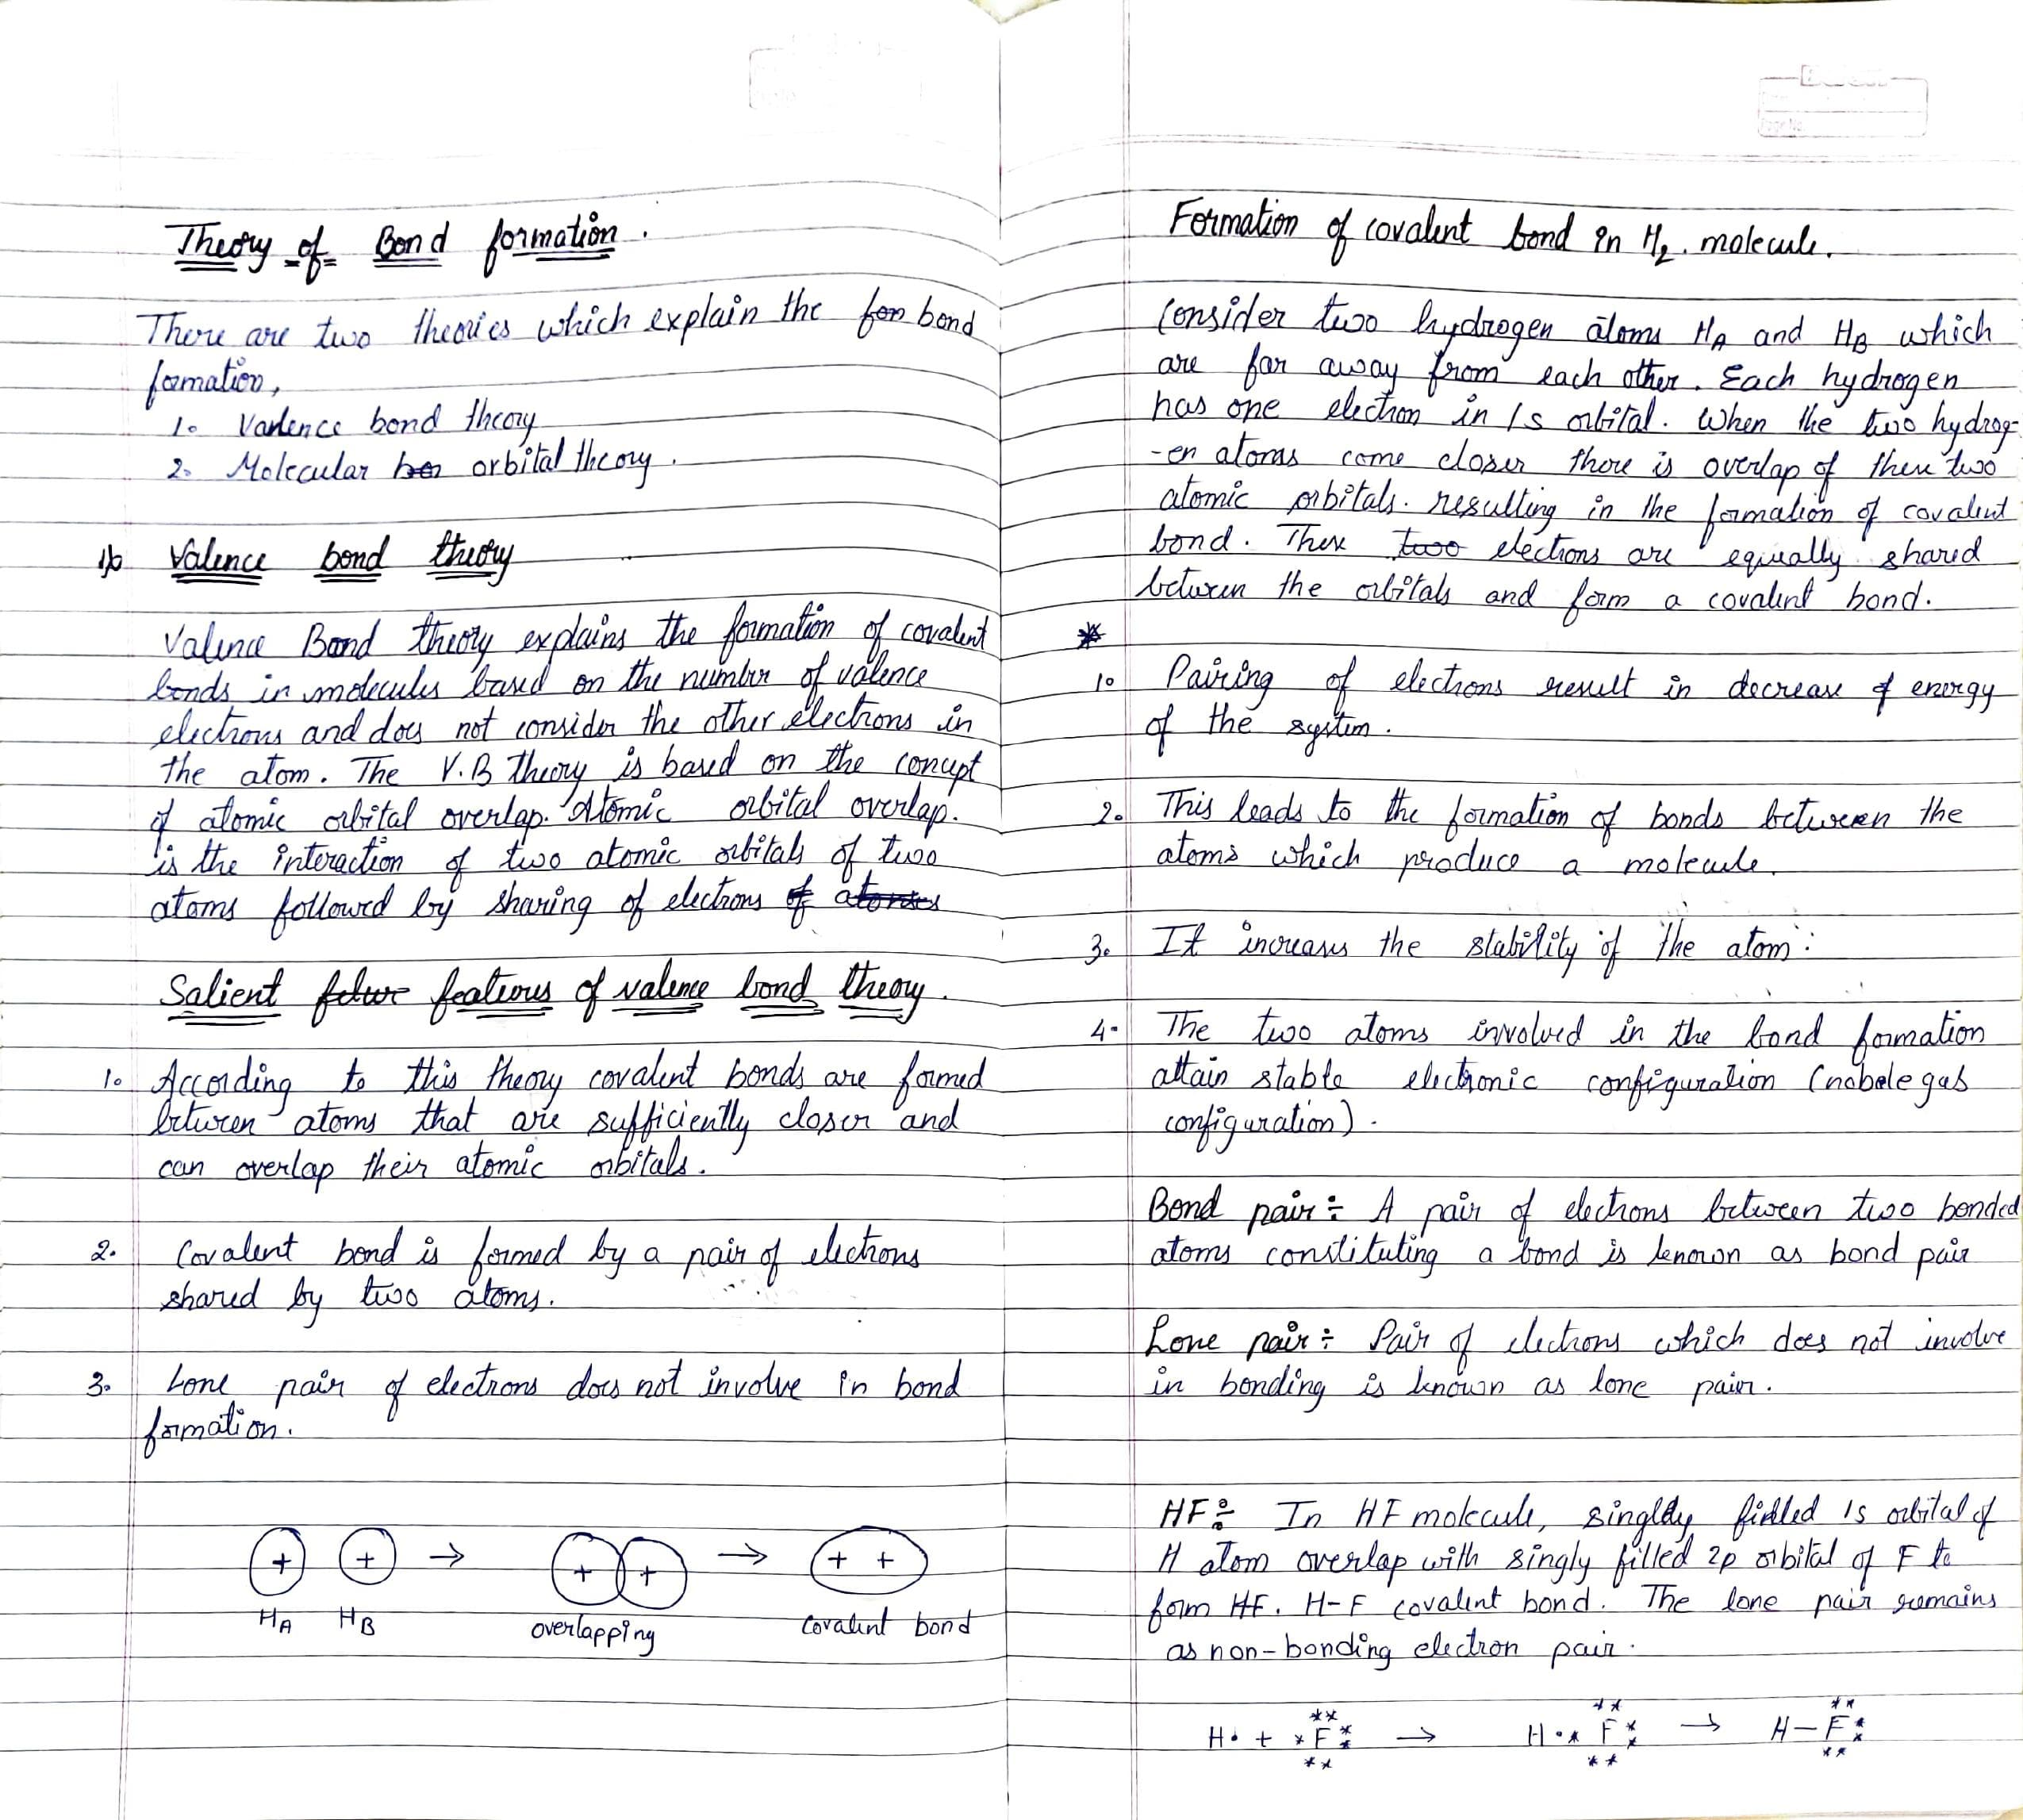 Theory of Bond formation.
There are two theories which explain the for bond
formation,
1. Vanlence bond theory
2. Molecular bon orbital theory.
1) Valence bond theory
Valence Bond theory explains the formation of covalent
bonds in molecules based on the number of valence
electrons and does not consider the other electrons in
the atom. The V.B theory is based on the concept
of atomic orbital overlap. Atomic orbital overlap.
is the interaction of two atomic orbitals of two
atoms followed by sharing of electrons of atomes
Salient feture featious of valence bond theory.
1. According to this theory covalent bonds are formed
between atoms that are sufficiently closer and
can overlap their atomic orbitals.
2. Covalent bond is formed by a pair of electrons
shared by two atoms.
3. Lone pair of electrons does not involve in bond
formation.
+ + → + + → + +
HA HB overlapping Covalent bond
Formation of covalent bond in H2. molecule.
Consider two hydrogen atoms HA and HB which
are far away from each other. Each hydrogen
has one electron in 1s orbital. When the two hydrog-
-en atoms come closer there is overlap of these two
atomic orbitals. resulting in the formation of covalent
bond. These two electrons are equally shared
between the orbitals and form a covalent bond.
*
1. Pairing of electrons result in decrease of energy
of the system.
2. This leads to the formation of bonds between the
atoms which produce a molecule.
3. It increases the stability of the atom.
4. The two atoms involved in the bond formation
attain stable electronic configuration (nobele gas
configuration).
Bond pair : A pair of electrons between two bonded
atoms constituting a bond is known as bond pair
Lone pair : Pair of electrons which does not involve
in bonding is known as lone pair.
HF : In HF molecule, singldy finlled 1s orbital of
H atom overlap with singly filled 2p orbital of F to
form HF. H-F covalent bond. The lone pair remains
as non-bonding electron pair.
H• + ×F → H•× F → H–F